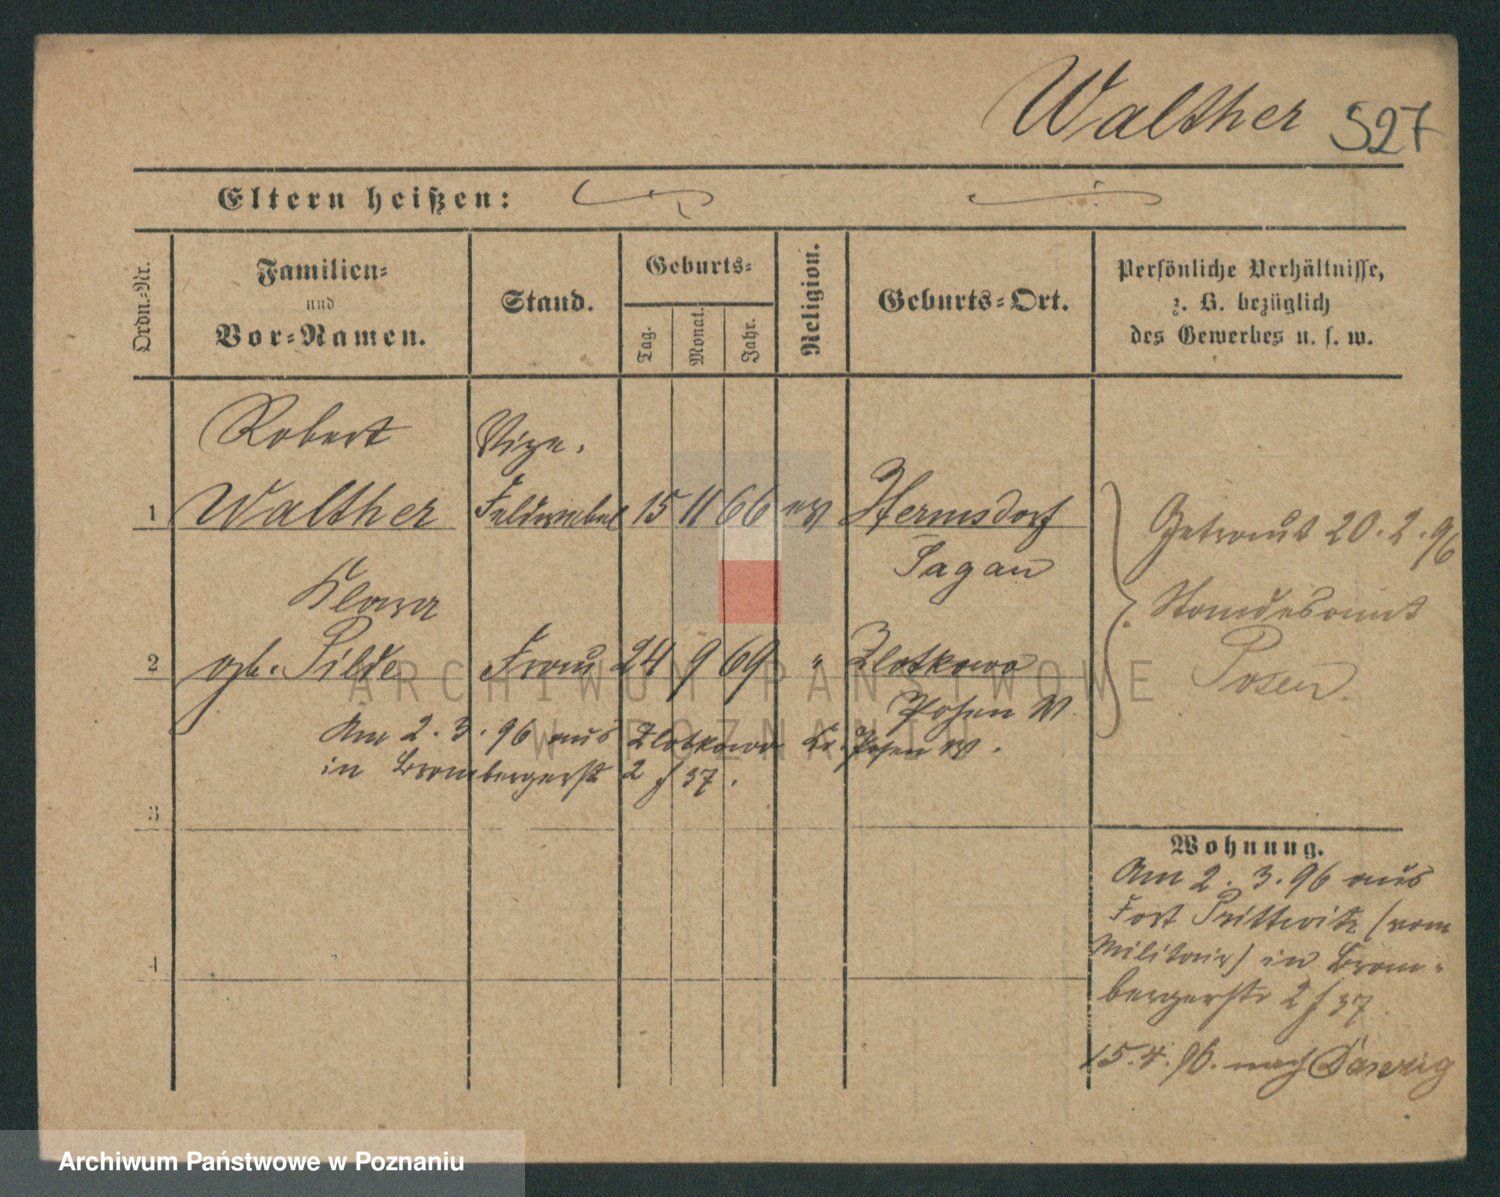 Walther 527
Eltern heißen:
Ordn.=Nr.
Familien=
und
Vor=Namen.
Stand.
Geburts=
Tag.
Monat.
Jahr.
Religion.
Geburts=Ort.
Persönliche Verhältnisse,
z. B. bezüglich
des Gewerbes u. s. w.
Robert Vize.
1 Walther Feldwebel 15 11 66 ev Hermsdorf
Sagan
Getraut 20.2.96
Standesamt
Posen.
Klara
2 geb. Pilde Frau 24 9 69 " Zlotkowo
Posen W
Am 2.3.96 aus Zlotkowo Kr. Posen W.
in Brombergerstr 2 f 37.
3
4
Wohnung.
Am 2.3.96 aus
Fort Prittwitz (vom
Militair) in Brom=
bergerstr 2 f 37
15.4.96. nach Danzig
ARCHIWUM PAŃSTWOWE
W POZNANIU
Archiwum Państwowe w Poznaniu